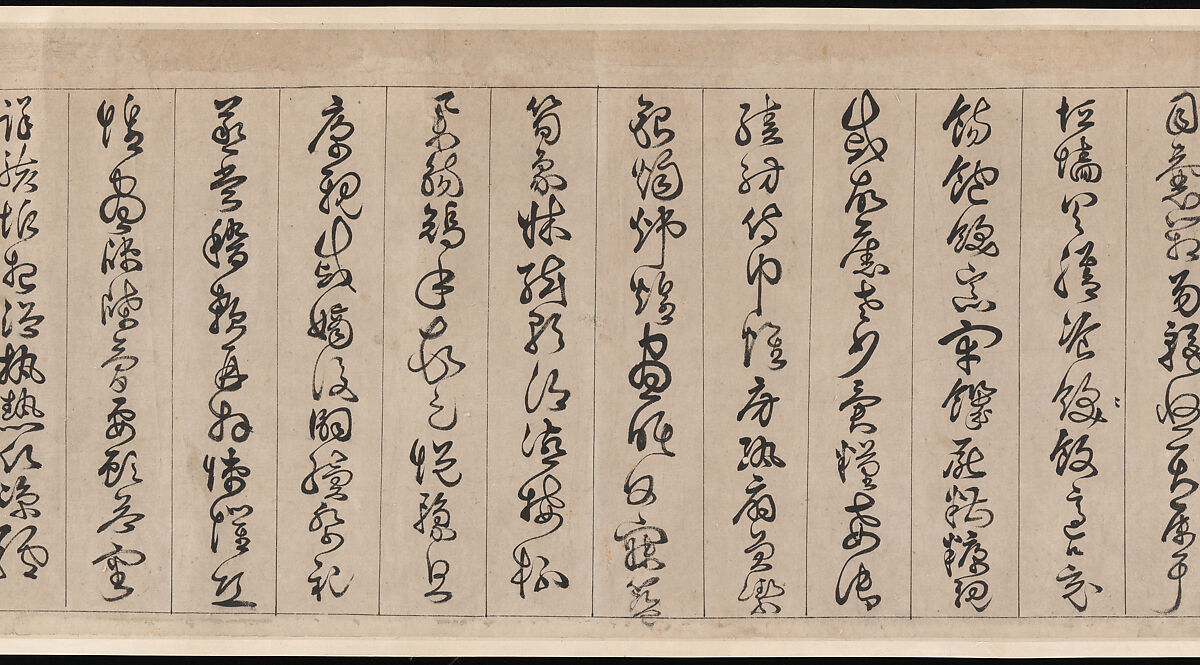 目囊箱易輶攸畏屬耳
垣牆具膳飡飫飯適口充
腸飽飫烹宰饑厭糟糠親
戚故舊老少異糧妾御
績紡侍巾帷房紈扇圓潔
銀燭煒煌晝眠夕寐藍
筍象牀絃歌酒讌接杯
舉觴矯手頓足悅豫且
康親戚嫡後嗣續祭祀
蒸嘗稽顙再拜悚懼恐
惶晝牋牒簡要顧答審
詳骸垢想浴執熱願涼驢